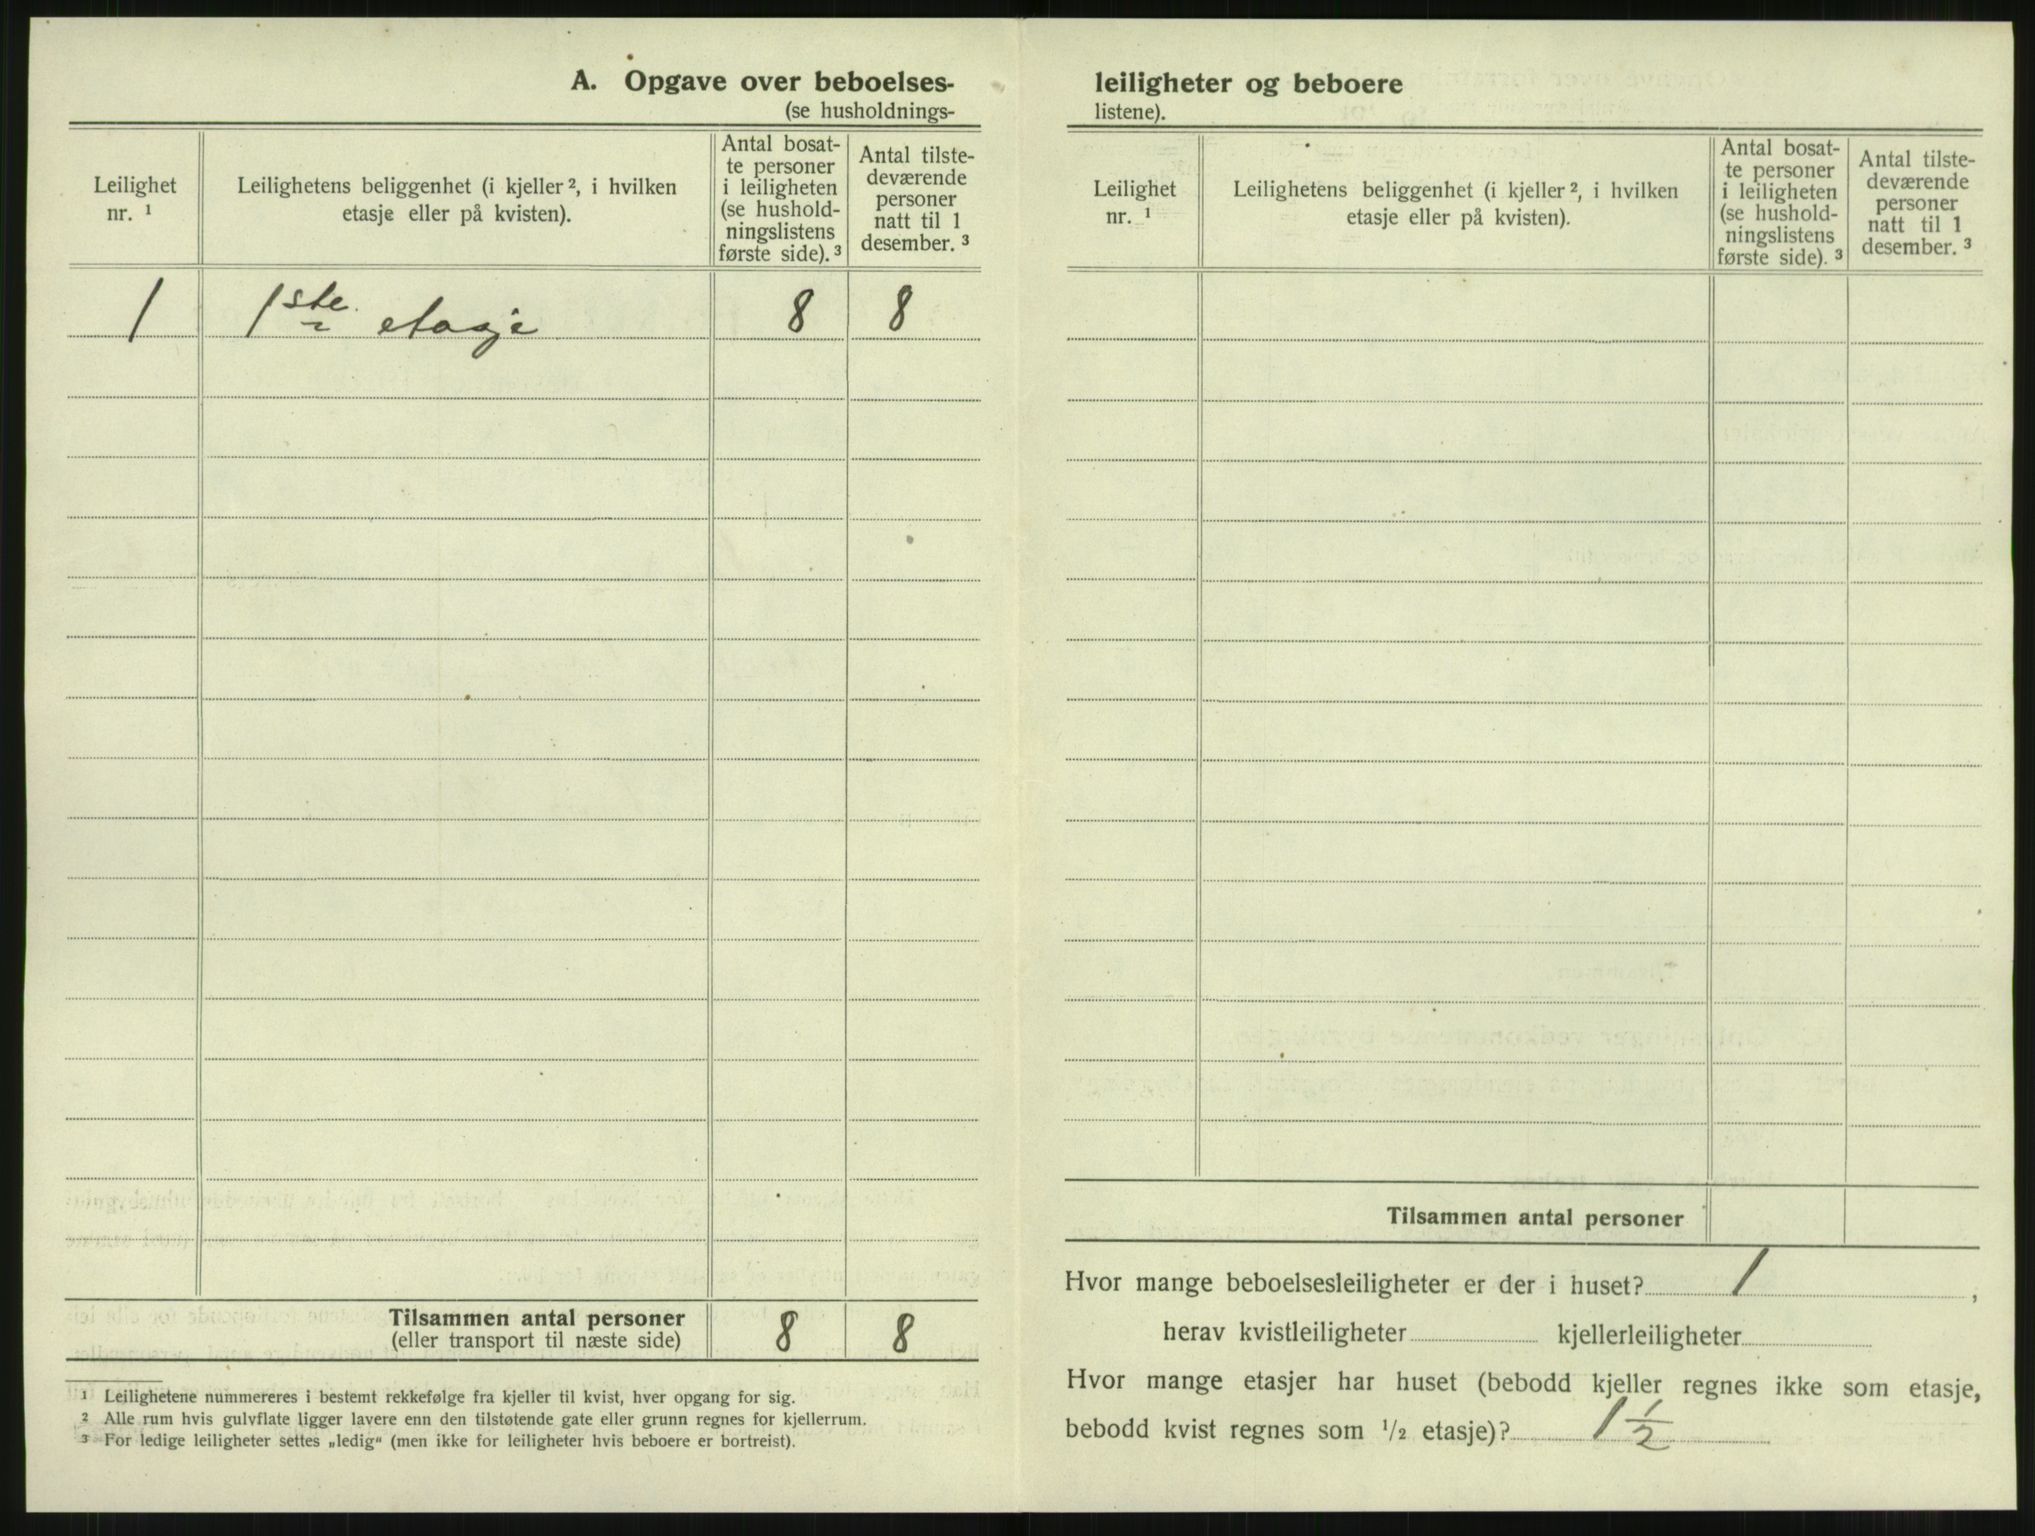 A. Opgave over beboelses-
(se husholdnings-
Leilighet
nr. 1
Leilighetens beliggenhet (i kjeller 2, i hvilken
etasje eller på kvisten).
Antal bosat-
te personer
i leiligheten
(se hushold-
ningslistens
første side). 3
Antal tilste-
deværende
personer
natt til 1
desember. 3
1 1ste etasje 8 8
Tilsammen antal personer 8 8
(eller transport til næste side)
1 Leilighetene nummereres i bestemt rekkefølge fra kjeller til kvist, hver opgang for sig.
2 Alle rum hvis gulvflate ligger lavere enn den tilstøtende gate eller grunn regnes for kjellerrum.
3 For ledige leiligheter settes „ledig“ (men ikke for leiligheter hvis beboere er bortreist).
leiligheter og beboere
listene).
Leilighet
nr. 1
Leilighetens beliggenhet (i kjeller 2, i hvilken
etasje eller på kvisten).
Antal bosat-
te personer
i leiligheten
(se hushold-
ningslistens
første side). 3
Antal tilste-
deværende
personer
natt til 1
desember. 3
Tilsammen antal personer
Hvor mange beboelsesleiligheter er der i huset? 1,
herav kvistleiligheter kjellerleiligheter
Hvor mange etasjer har huset (bebodd kjeller regnes ikke som etasje,
bebodd kvist regnes som 1/2 etasje)? 1 1/2